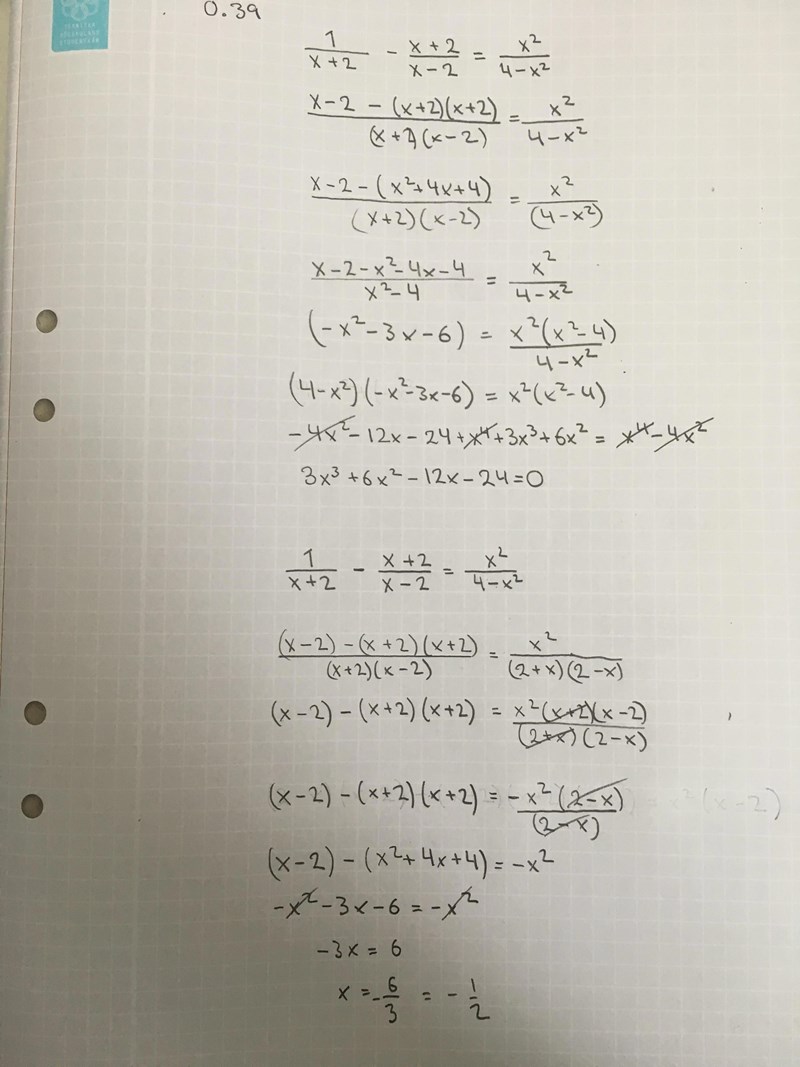 0.39
1/(x+2) - (x+2)/(x-2) = x²/(4-x²)
(x-2-(x+2)(x+2))/((x+2)(x-2)) = x²/(4-x²)
(x-2-(x²+4x+4))/((x+2)(x-2)) = x²/(4-x²)
(x-2-x²-4x-4)/(x²-4) = x²/(4-x²)
(-x²-3x-6) = x²(x²-4)/(4-x²)
(4-x²)(-x²-3x-6) = x²(x²-4)
-4x²-12x-24+x⁴+3x³+6x² = x⁴-4x²
3x³+6x²-12x-24=0
1/(x+2) - (x+2)/(x-2) = x²/(4-x²)
((x-2)-(x+2)(x+2))/((x+2)(x-2)) = x²/((2+x)(2-x))
(x-2)-(x+2)(x+2) = x²(x+2)(x-2)/((2+x)(2-x))
(x-2)-(x+2)(x+2) = -x²(2-x)/(2-x)
(x-2)-(x²+4x+4) = -x²
-x²-3x-6 = -x²
-3x = 6
x = -6/3 = -1/2